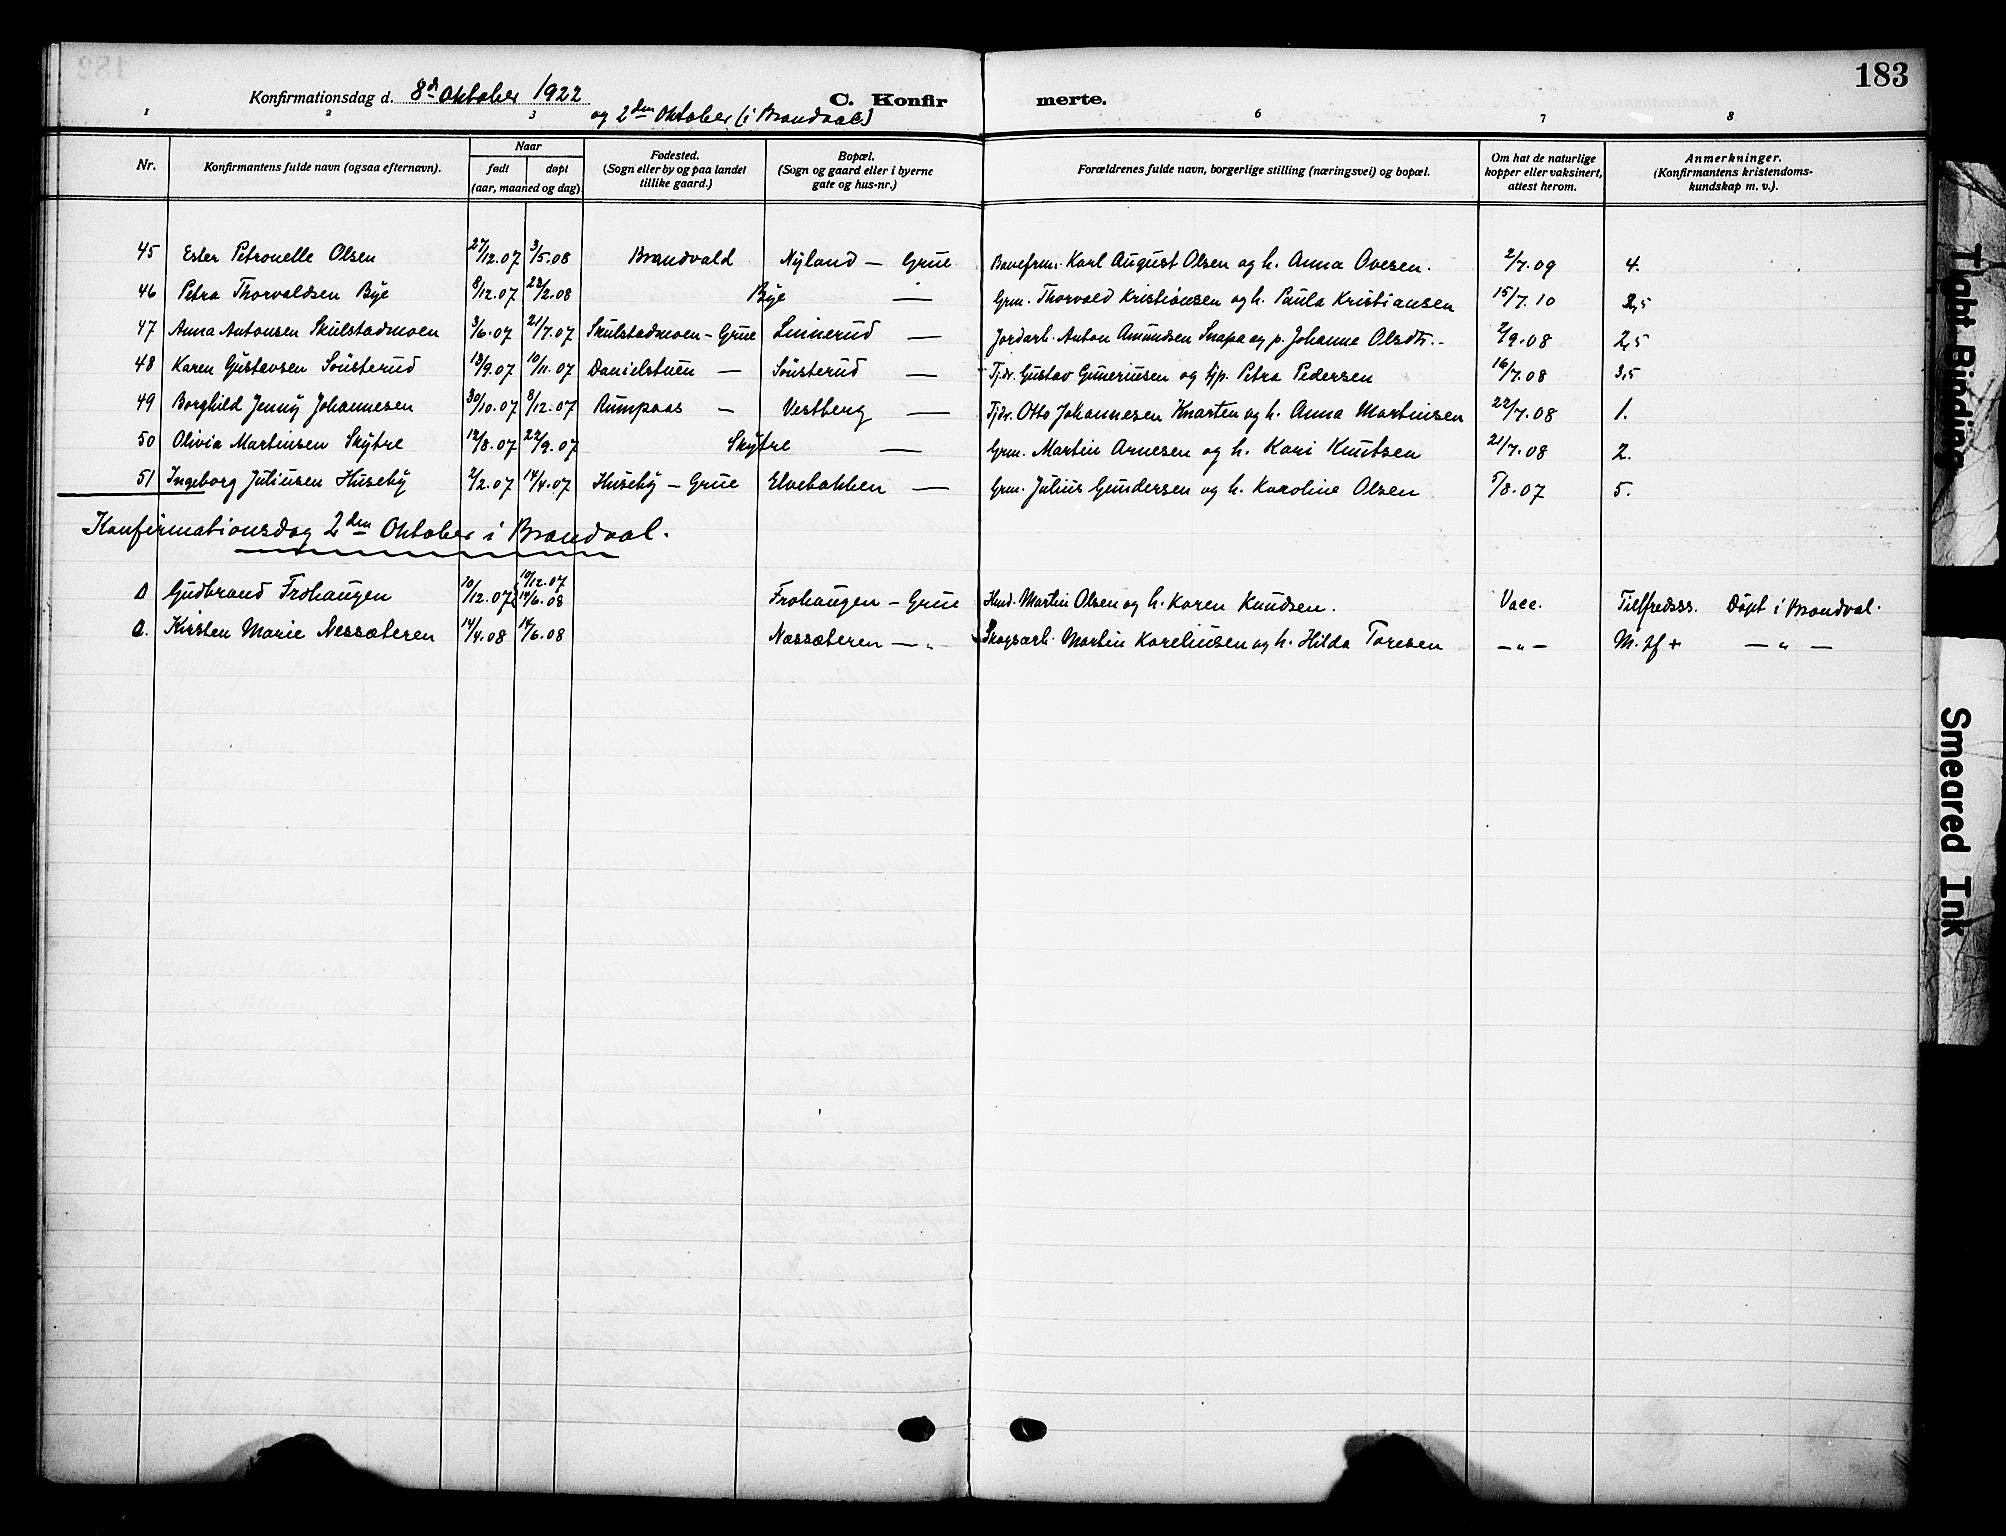 183
Konfirmationsdag d. 8d Oktober 1922 C. Konfir merte.
og 2den Oktober (i Brandval)
1 2 3 6 7 8
Nr. Konfirmantens fulde navn (ogsaa efternavn). Naar født døpt (aar, maaned og dag) Fødested. (Sogn eller by og paa landet tillike gaard.) Bopæl. (Sogn og gaard eller i byerne gate og hus-nr.) Forældrenes fulde navn, borgerlige stilling (næringsvei) og bopæl. Om hat de naturlige kopper eller vaksinert, attest herom. Anmerkninger. (Konfirmantens kristendoms-kundskap m. v.).
45 Ester Petronelle Olsen 27/12.07 3/5.08 Brandvald Nyland — Grue Banefrm. Karl August Olsen og h. Anna Ovesen. 2/7.09 4.
46 Petra Thorvaldsen Bye 8/12.07 23/2.08 Bye — Grm. Thorvald Kristiansen og h. Paula Kristiansen 15/7.10 2,5
47 Anna Antonsen Skulstadmoen 3/6.07 21/7.07 Skulstadmoen - Grue Linnerud — Jordarb. Anton Amundsen Snapa og p. Johanne Olsdtr. 2/9.08 2,5
48 Karen Gustavsen Sønsterud 13/9.07 10/11.07 Danielstuen — Sønsterud — Tjdr. Gustav Guneriusen og hp. Petra Pedersen 16/7.08 3,5
49 Borghild Jenny Johannesen 30/10.07 8/12.07 Rumpaas — Vestberg — Tjdr. Otto Johannesen Knarten og h. Anna Martinsen 22/7.08 1.
50 Olivia Martinsen Skytre 12/8.07 22/9.07 Skytre — Grm. Martin Arnesen og h. Kari Knutsen 21/7.08 2.
51 Ingeborg Juliusen Huseby 2/2.07 14/4.07 Huseby — Grue Elvebakken — Grm. Julius Gundersen og h. Karoline Olsen 5/8.07 5.
Konfirmationsdag 2den Oktober i Brandval.
Gudbrand Frohaugen 10/12.07 10/12.07 14/6.08 Frohaugen — Grue Hmd. Martin Olsen og h. Karen Knudsen. Vacc. Tilfredss. Døpt i Brandval.
Kirsten Marie Nessæteren 14/4.08 14/6.08 Næssæteren — „ Skogsarb. Martin Kareliusen og h. Hilda Toresen — „ — M. tf + — „ —
Tight Binding
Smeared Ink